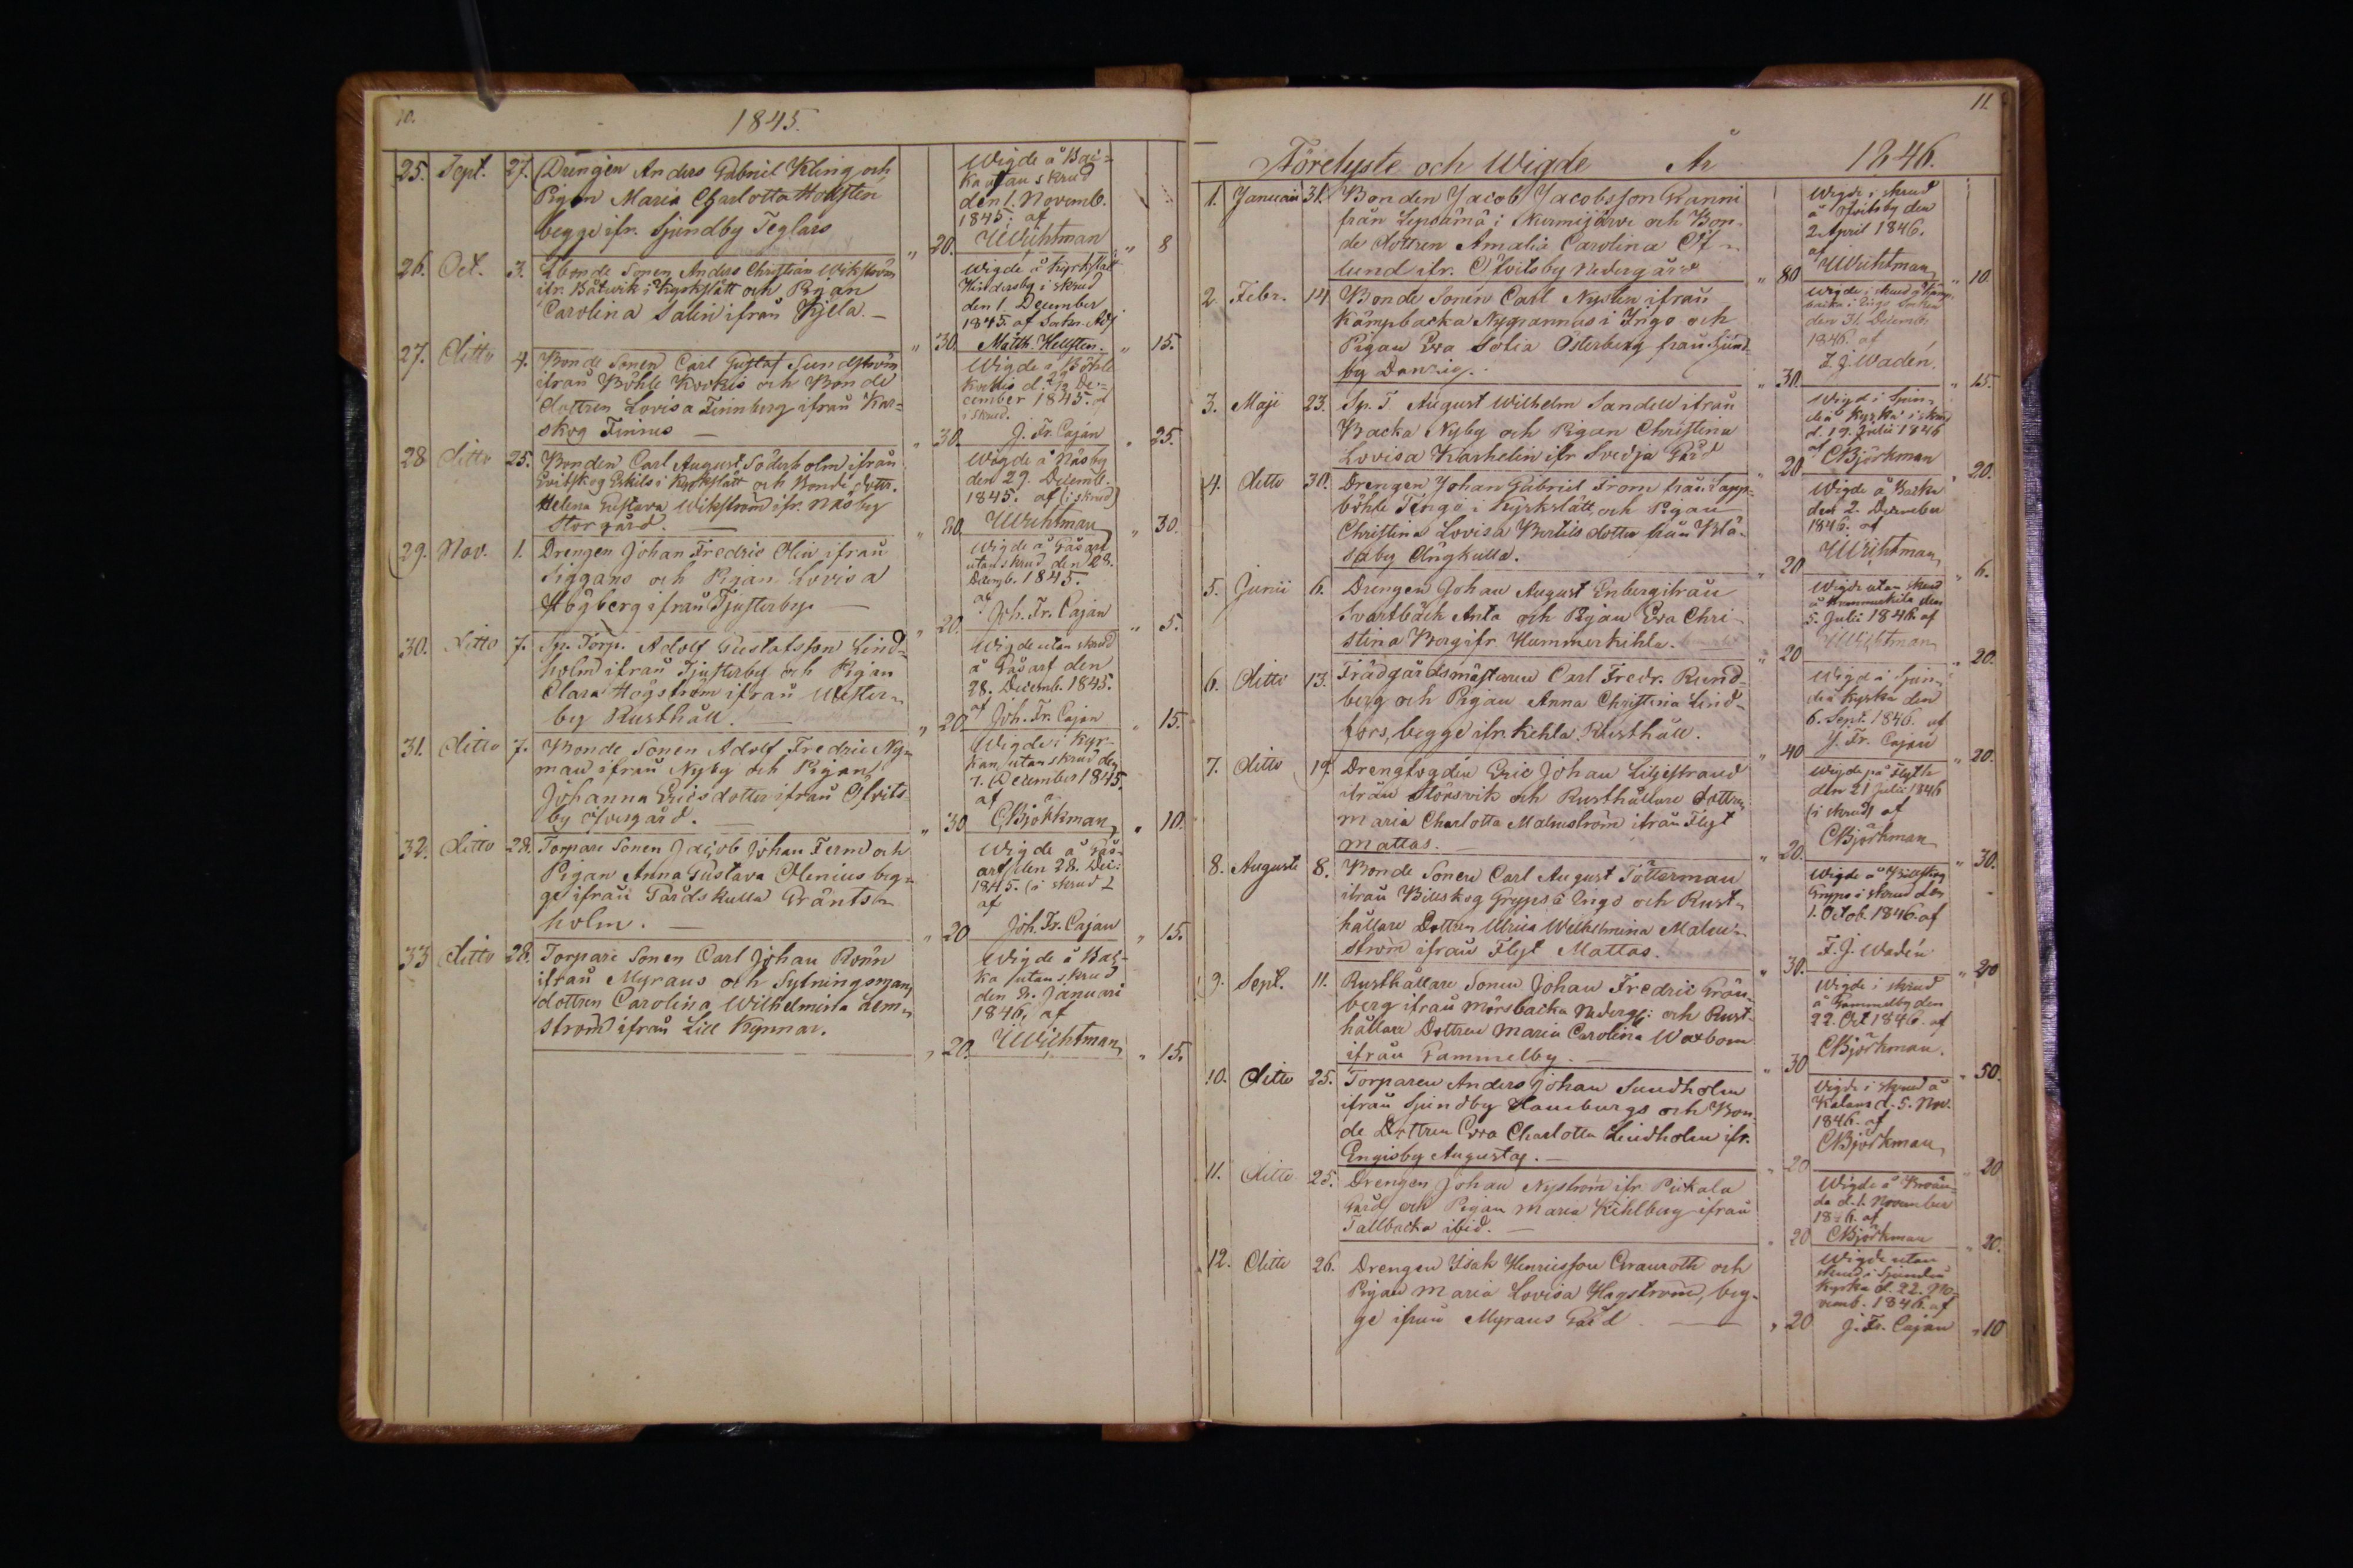 10.
1845.
25. Sept. 27. Drengen Anders Gabriel Kling och
Pigan Maria Charlotta Hollsten
begge ifr. Sjundby Teglars
" 20.
Wigde å Bac-
ka utan skrud
den 1. Novemb.
1845. af
Wichtman
" 8
26. Oct. 3. Bonde Sonen Anders Christian Wikström
ifr. Båtwik i Kyrkslätt och Pigan
Carolina Salin ifrån Kjela. —
" 30.
Wigde å Kyrkslätt
Hindersby i skrud
den 1. December
1845. af Sockn. Adj
Matth. Hellsten.
" 15.
27. Ditto 4. Bonde Sonen Carl Gustaf Sundström
ifrån Böhle Kockis och Bonde
Dottren Lovisa Finnberg ifrån Kar-
skog Finnus —
" 30.
Wigde å Böhle
Kockis d. De-
cember 1845. af
i skrud.
J. Fr. Cajan
" 25.
28 Ditto 25. Bonden Carl August Söderholm ifrån
Evitskog Eskils i Kyrkslätt och Bonde dottr.
Helena Gustava Wikström ifr. Näsby
Storgård. —
" 30.
Wigde å Näsby
den 29. Decemb.
1845. af (i skrud)
Wichtman
" 30.
29. Nov. 1. Drengen Johan Fredric Olin ifrån
Siggans och Pigan Lovisa
Högberg ifrån Tjusterby. —
" 20.
Wigde å Gåsarf
utan skrud den 28.
Decemb. 1845.
af
Joh. Fr. Cajan
" 5.
30. Ditto 7. Sp. Torp. Adolf Gustafsson Lind-
holm ifrån Tjusterby och Pigan
Clara Högström ifrån Wester-
by Rusthåll. —
" 20
Wigde utan skrud
å Gåsarf den
28. Decemb. 1845.
af
Joh. Fr. Cajan
" 15.
31. Ditto 7. Bonde Sonen Adolf Fredric Ny-
man ifrån Nyby och Pigan
Johanna Ericsdotter ifrån Ofvits-
by öfvergård. —
" 30
Wigde i Kyr-
kan utan skrud den
7. December 1845.
af
CBjörkman
" 10.
32. Ditto 28. Torpare Sonen Jacob Johan Ferm och
Pigan Anna Gustava Olenius beg-
ge ifrån Gårdskulla Gränts-
holm. —
" 20
Wigde å Gås-
arf den 28. Dec:
1845. (i skrud)
af
Joh. Fr. Cajan
" 15.
33 Ditto 28. Torpare Sonen Carl Johan Rönn
ifrån Myrans och Sytningsman,
dottren Carolina Wilhelmina Lem-
ström ifrån Lill Kynnar.
" 20.
Wigde å Bac-
ka utan skrud
den Januari
1846, af
Wichtman
" 15.
11.
Förelyste och Wigde År 1846.
1. Januari 31. Bonden Jacob Jacobsson Granni
från Lepsämä i Nurmijärvi och Bon-
de dottren Amalia Carolina Öf-
lund ifr. Ofvitsby Nedergård
" 80
Wigde i skrud
å Ofvitsby den
2. April 1846.
af
Wichtman
" 10.
2. Febr. 14. Bonde Sonen Carl Nysten ifrån
Kämpbacka Nygrannas i Ingo och
Pigan Eva Sofia Österberg från Sjund-
by Danzig.
" 30.
Wigde i skrud å Kämp-
backa i Ingo Socken
den 31. Decemb.
1846. af
F. J. Wadén.
" 15.
3. Maji 23. Sp. T. August Wilhelm Sandell ifrån
Backa Nyby och Pigan Christina
Lovisa Karhelin ifr Svedja Gård
" 20
Wigd i Sjun-
deå Kyrka i skrud
d. 19. Julii 1846
af CBjörkman
" 20.
4. Ditto 30. Drengen Johan Gabriel From från Papp-
böhle Tengo i Kyrkslätt och Pigan
Christina Lovisa Bertils dotter från Blå-
saby Ängkulla.
" 20
Wigde å Backa
den 2. December
1846. af
Wichtman
" 6.
5. Junii 6. Drengen Johan August Enberg ifrån
Svartbäck Anta och Pigan Eva Chri-
stina Borg ifr Hummerkihla.
" 20
Wigde utan skrud
å Hummerkihla den
5. Julii 1846. af
Wichtman
" 20.
6. Ditto 13. Trädgårdsmästaren Carl Fredr. Rund-
berg och Pigan Anna Christina Lind-
fors, begge ifr. Kehla Rusthåll.
" 40
Wigd i Sjun-
deå Kyrka den
6. Sept. 1846. af
J. Fr. Cajan
" 20.
7. Ditto 19. Drengfogden Eric Johan Liljestrand
ifrån Störsvik och Rusthållare dottren
Maria Charlotta Malmström ifrån Flyt
Mattas. —
" 20.
Wigde på Flyth
den 21 Julii 1846
(i skrud) af
CBjörkman
" 30.
8. Augusti 8. Bonde Sonen Carl August Totterman
ifrån Billskog Gryps i Ingo och Rust-
hållare Dottren Ulrica Wilhelmina Malm-
ström ifrån Flyt Mattas.
" 30.
Wigde å Billskog
Gryps i skrud den
1. Octob. 1846. af
F. J. Wadén
" 20
9. Sept. 11. Rusthållare Sonen Johan Fredric Grön-
berg ifrån Mörsbacka Nederg: och Rust-
hållare Dottren Maria Carolina Waxbom
ifrån Gammelby. —
" 30
Wigde i skrud
å Gammelby den
22. Oct 1846. af
CBjörkman.
" 50.
10. Ditto 25. Torparen Anders Johan Sundholm
ifrån Sjundby Hamburgs och Bon-
de Dottren Eva Charlotta Lindholm ifr.
Engisby Augustas. —
" 20
Wigde i skrud å
Kalans d. 5. Nov.
1846. af
CBjörkman
" 20
11. Ditto 25. Drengen Johan Nyström ifr. Pickala
Gård och Pigan Maria Kihlberg ifrån
Tallbacka ibid. —
" 20
Wigde å
d. 1. November
1846. af
CBjörkman
" 20.
12. Ditto 26. Drengen Isak Henricsson Granroth och
Pigan Maria Lovisa Hagström, beg-
ge ifrån Myrans Gård. —
" 20
Wigde utan
skrud i Sjundeå
Kyrka d. 22. No-
vemb. 1846. af
J. Fr. Cajan
" 10